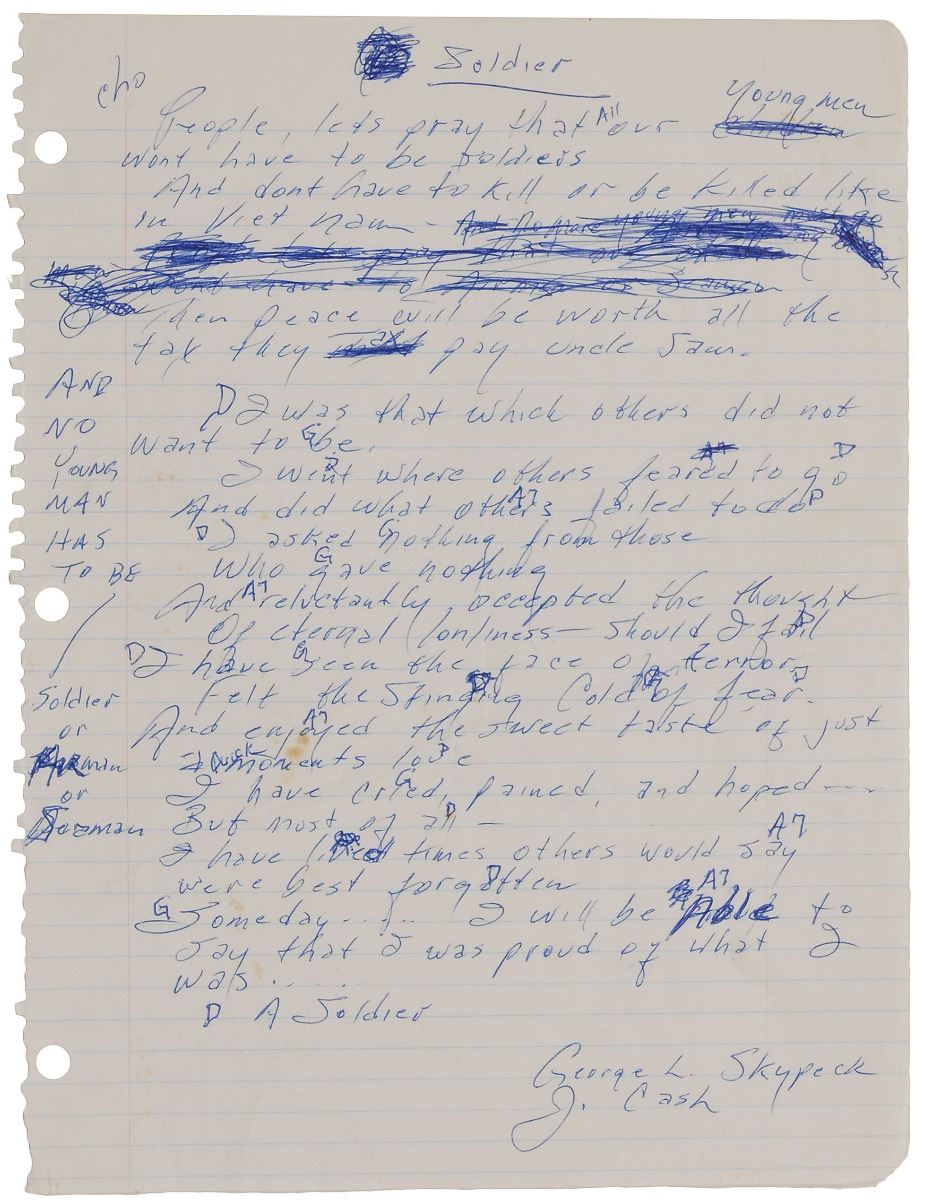 Soldier
cho
People, lets pray that All our Young men
wont have to be soldiers
And dont have to kill or be killed like
in Viet nam - And No more young men must go
pray that our
wont have to Airman or Seaman
Then peace will be worth all the
tax they pay uncle Sam.
D I was that which others did not
want to be.
G
I went where others feared to go
D A7 D
And did what others failed to do
A7 D
D I asked nothing from those
G
Who gave nothing
G
And reluctantly, accepted the thought
A7
Of eternal lonliness - should I fail
D I have seen the face of terror
G
Felt the Stinging Cold of fear.
D D
And enjoyed the sweet taste of just
A7
a Quick moments love
D
I have cried, pained, and hoped ----
G
But most of all -
D
I have lived times others would say
A7
were best forgotten
D
G Someday...... I will be Able to
A7
Say that I was proud of what I
was.....
D A Soldier
George L. Skypeck
J. Cash
AND
NO
YOUNG
MAN
HAS
TO BE
/
Soldier
or
Airman
or
Seaman